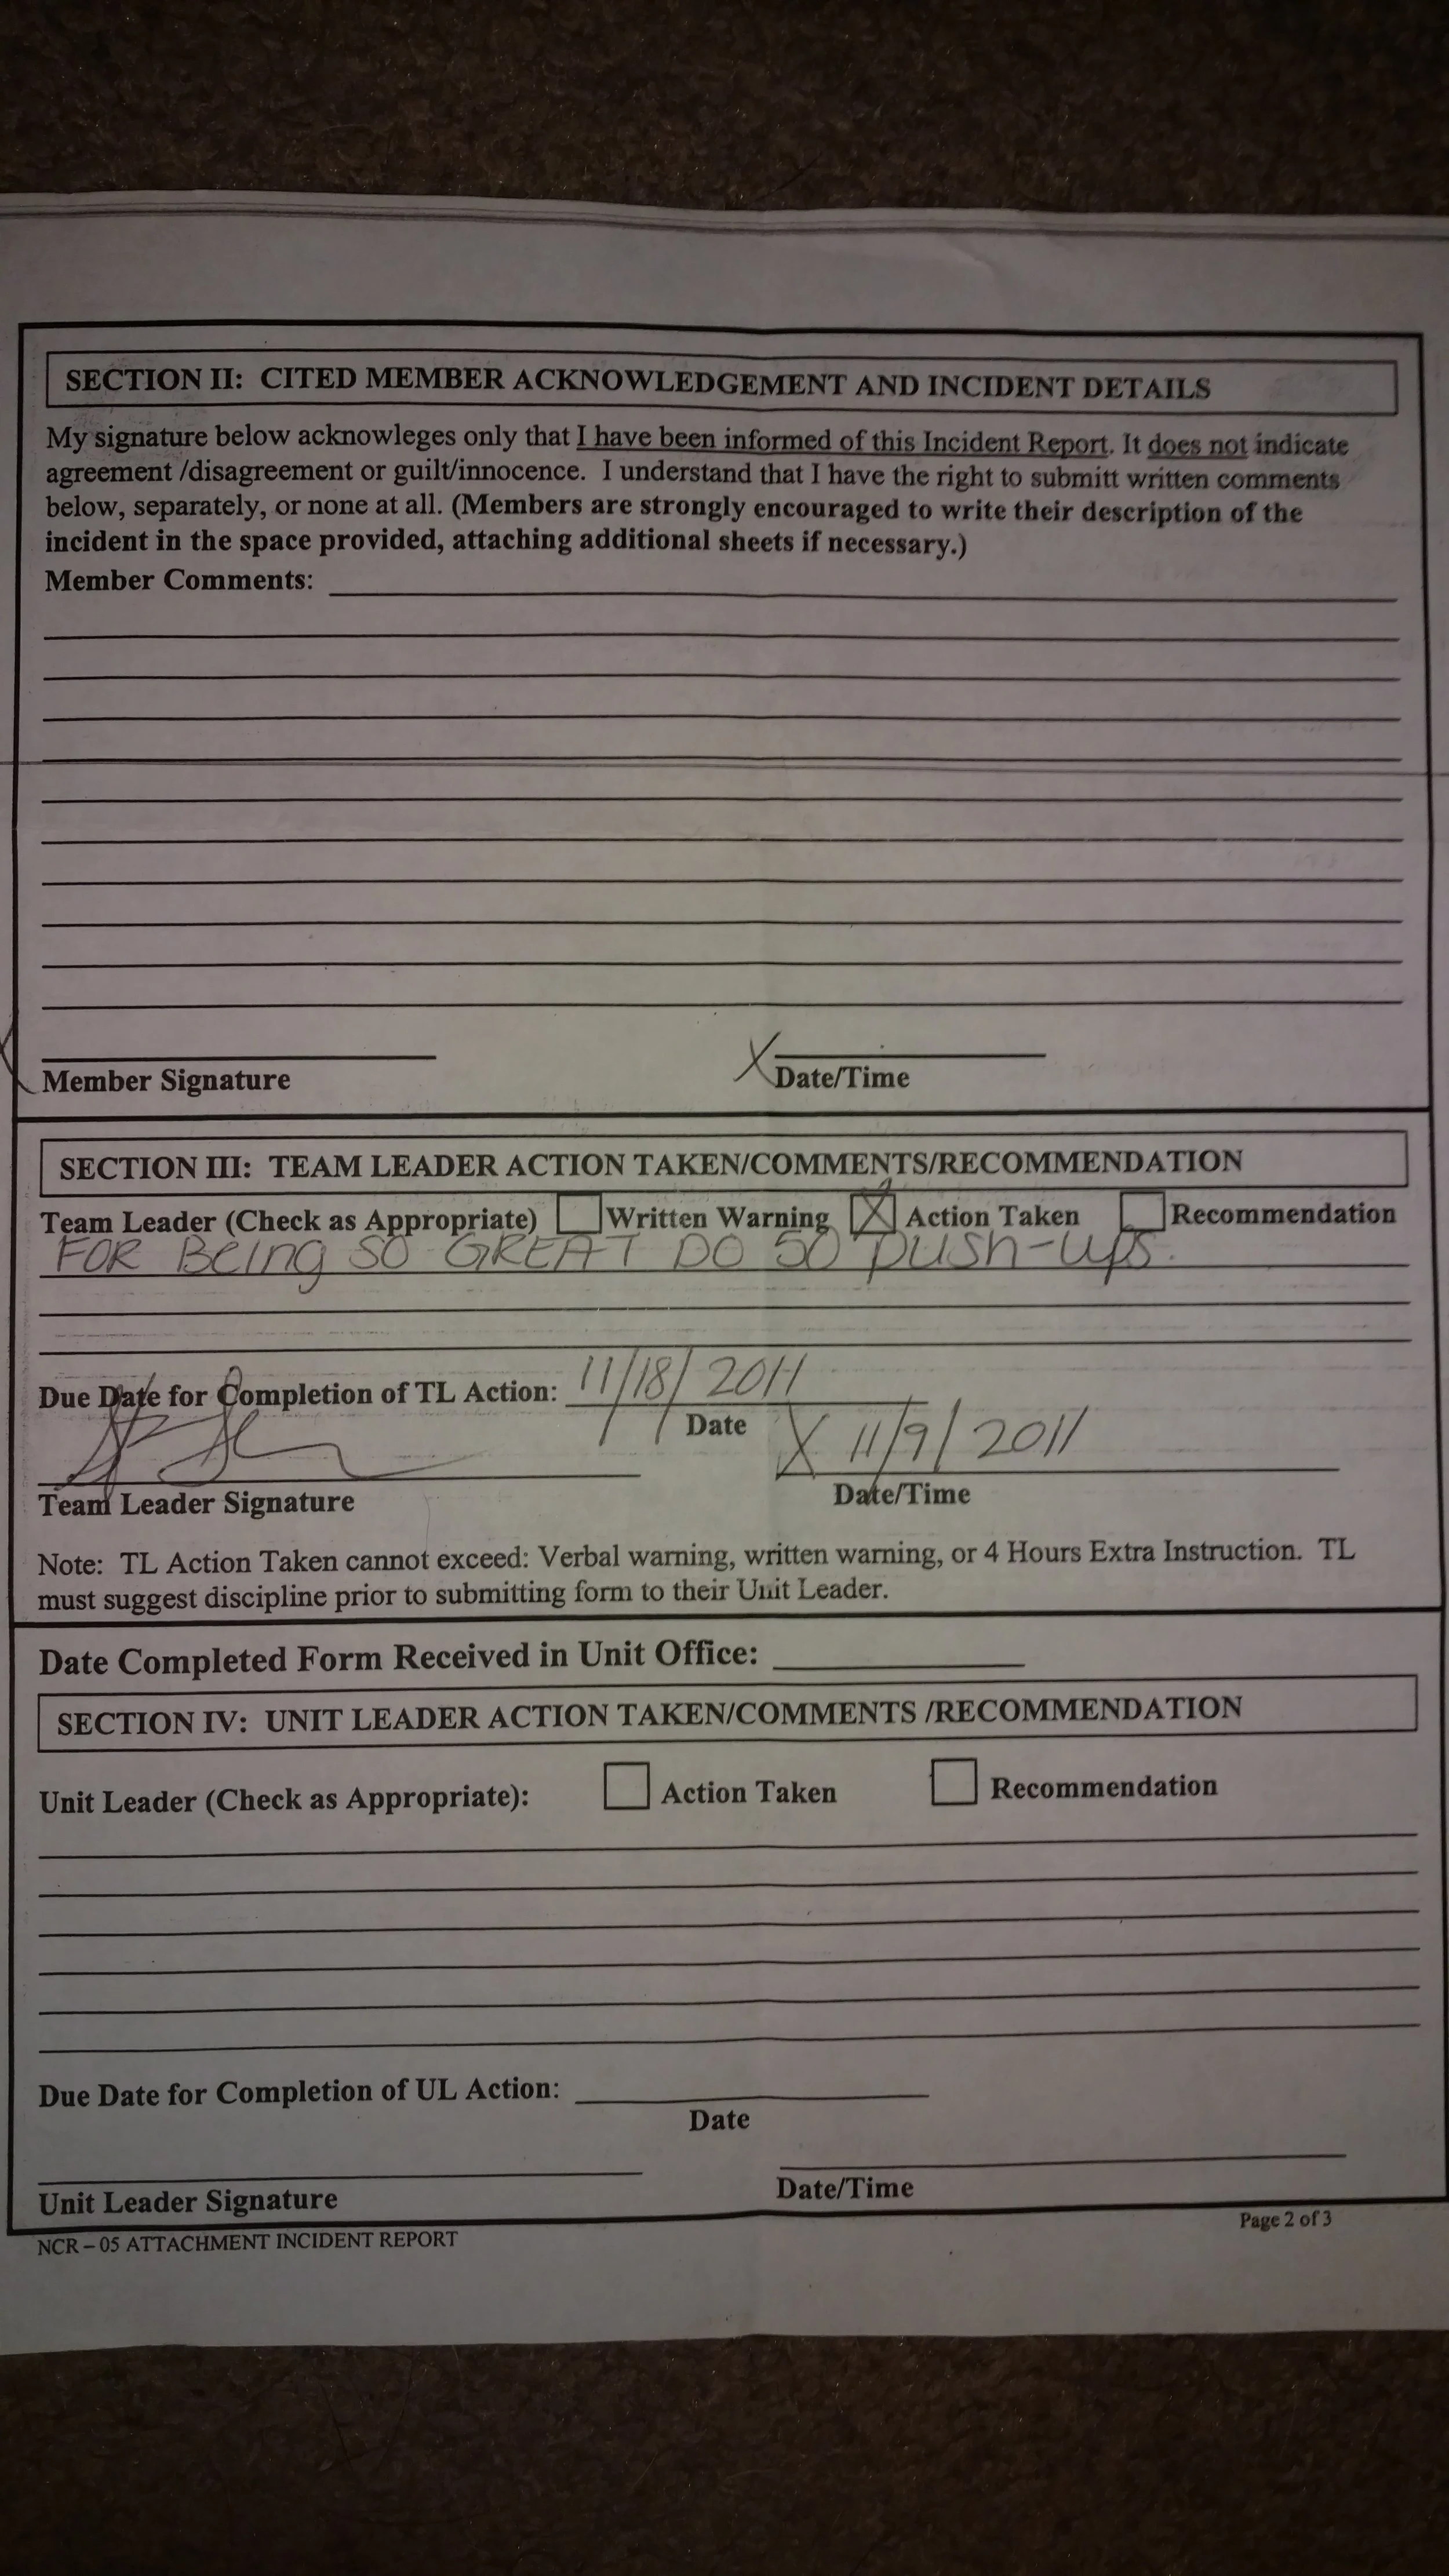 SECTION II: CITED MEMBER ACKNOWLEDGEMENT AND INCIDENT DETAILS
My signature below acknowleges only that I have been informed of this Incident Report. It does not indicate
agreement /disagreement or guilt/innocence. I understand that I have the right to submitt written comments
below, separately, or none at all. (Members are strongly encouraged to write their description of the
incident in the space provided, attaching additional sheets if necessary.)
Member Comments:
X
Member Signature
Date/Time
SECTION III: TEAM LEADER ACTION TAKEN/COMMENTS/RECOMMENDATION
Team Leader (Check as Appropriate) Written Warning X Action Taken Recommendation
FOR Being SO GREAT DO 50 push-ups.
Due Date for Completion of TL Action: 11/18/2011
Date
X 11/9/2011
Team Leader Signature
Date/Time
Note: TL Action Taken cannot exceed: Verbal warning, written warning, or 4 Hours Extra Instruction. TL
must suggest discipline prior to submitting form to their Unit Leader.
Date Completed Form Received in Unit Office:
SECTION IV: UNIT LEADER ACTION TAKEN/COMMENTS /RECOMMENDATION
Unit Leader (Check as Appropriate): Action Taken Recommendation
Due Date for Completion of UL Action:
Date
Unit Leader Signature
Date/Time
NCR – 05 ATTACHMENT INCIDENT REPORT
Page 2 of 3